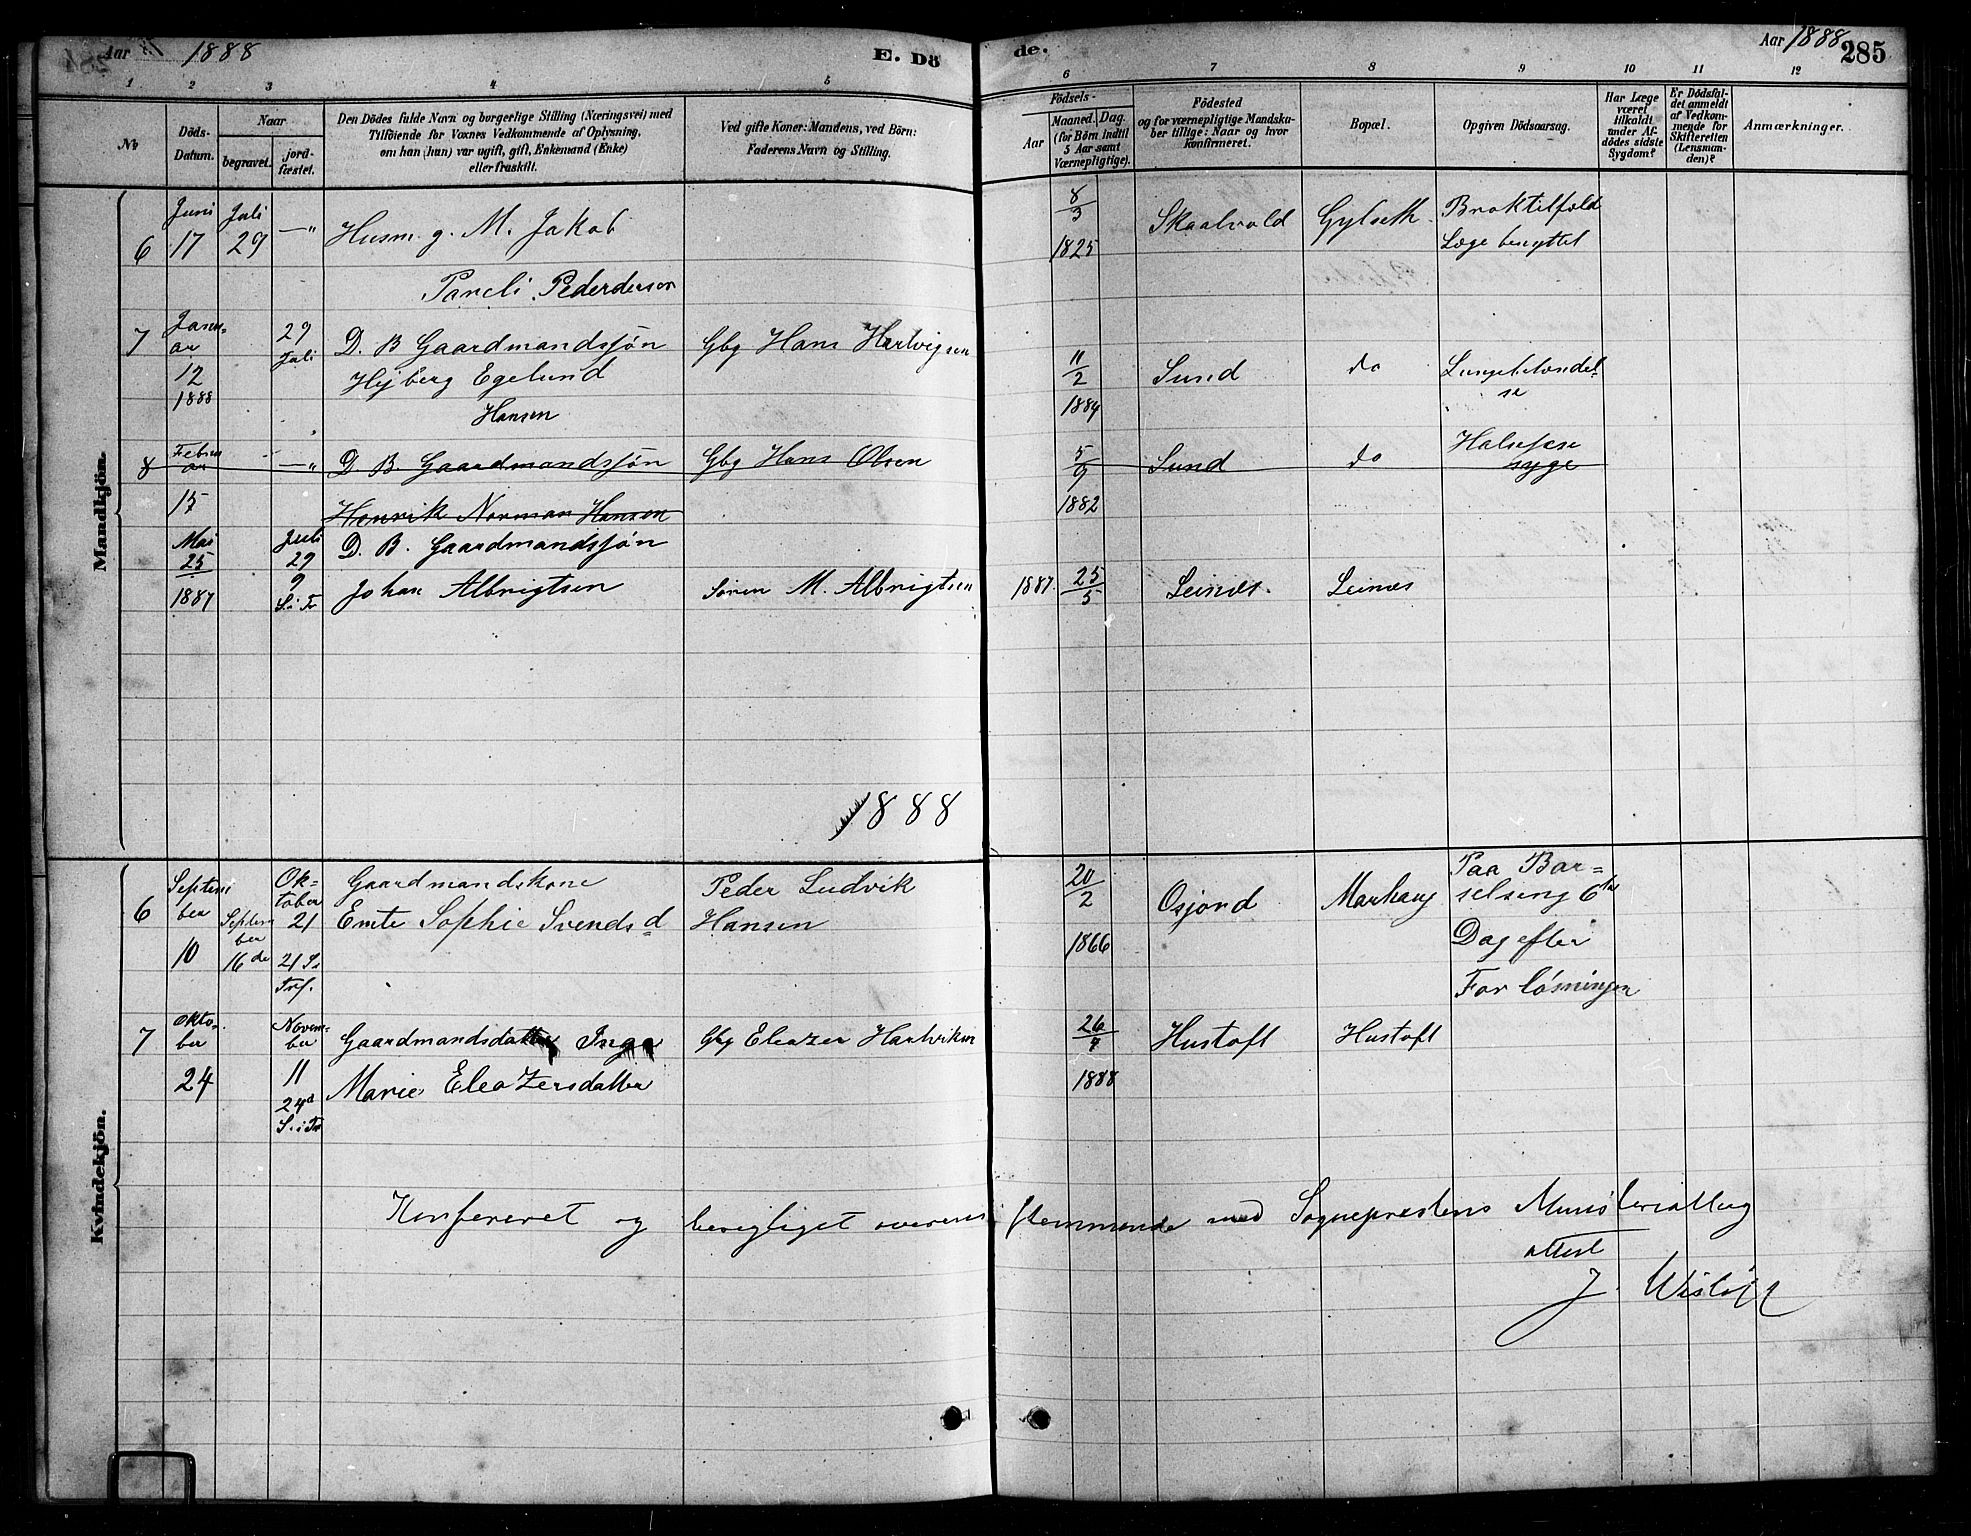 Aar 1888
E. Dö
de.
Aar 1888
285
1 2 3 4 5 6 7 8 9 10 11 12
No
Döds-
Datum.
Naar
begravet.
jord-
fæstet.
Den Dödes fulde Navn og borgerlige Stilling (Næringsvei) med
Tilföiende for Voxnes Vedkommende af Oplysning,
om han (hun) var ugift, gift, Enkemand (Enke)
eller fraskilt.
Ved gifte Koner: Mandens, ved Börn:
Faderens Navn og Stilling.
Födsels-
Aar
Maaned. Dag.
(for Börn indtil
5 Aar samt
Værnepligtige).
Födested
og for værnepligtige Mandska-
ber tillige: Naar og hvor
konfirmeret.
Bopæl.
Opgiven Dödsaarsag.
Har Læge
været
tilkaldt
under Af-
dödes sidste
Sygdom?
Er Dödsfal-
det anmeldt
af Vedkom-
mende for
Skifteretten
(Lensman-
den)?
Anmærkninger.
Mandkjön.
6 Juni 17 Juli 29 —" Husm. g. M. Jakob
Pareli Pederdersen
8/3 1825 Skaalvold Gylseth Broktilfæld
Læge benyttet
7 Janu-
ar
12
1888
29
Juli
D. B Gaardmandssøn
Hejberg Egelund
Hansen
Gbg Hans Hartvigsen
11/2 1884 Sund do Lungebetændel-
se
8 Febru
ar
15
—" D B Gaardmandssøn
Henrik Norman Hansen
Gbg Hans Olsen
5/9 1882 Sund do Halsesse
syge
Mai
25
1887
Juli
29
9
S. i Tr
D. B. Gaardmandssøn
Johan Albrigtsen
Sören M. Albrigtsen
1887 25/5 Leines Leines
1888
Kvindekjön.
6 Septem
ber
10
Septem
ber
16de
Ok-
tober
21
21 S.
Trf.
Gaardmandskone
Emte Sophie Svendsd
Peder Ludvik
Hansen
20/2 1866 Osjord Marhaug Paa Bar-
selseng 6te
Dag efter
Forløsningen
7 Okto-
ber
24
Novem-
ber
11
24d
S. i Tr
Gaardmandsdatter Inga
Marie Eleazersdatter
Gbg Eleazer Hartviksen
26/9 1888 Hustoft Hustoft
Konfereret og berigtiget overensstemmende med Sogneprestens Ministerialbog
attest
J. Wisløff